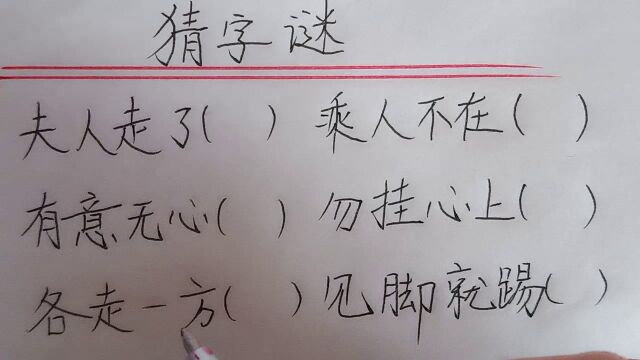 猜字谜
夫人走了( ) 乘人不在( )
有意无心( ) 勿挂心上( )
各走一方( ) 见脚就踢( )